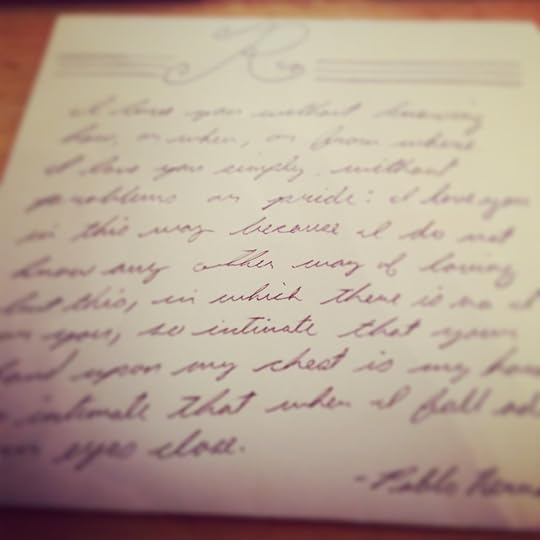 R
I love you without knowing
how, or when, or from where
I love you simply, without
problems or pride: I love you
in this way because I do not
know any other way of loving
but this, in which there is no I
or you, so intimate that your
hand upon my chest is my hand
intimate that when I fall
your eyes close.
- Pablo